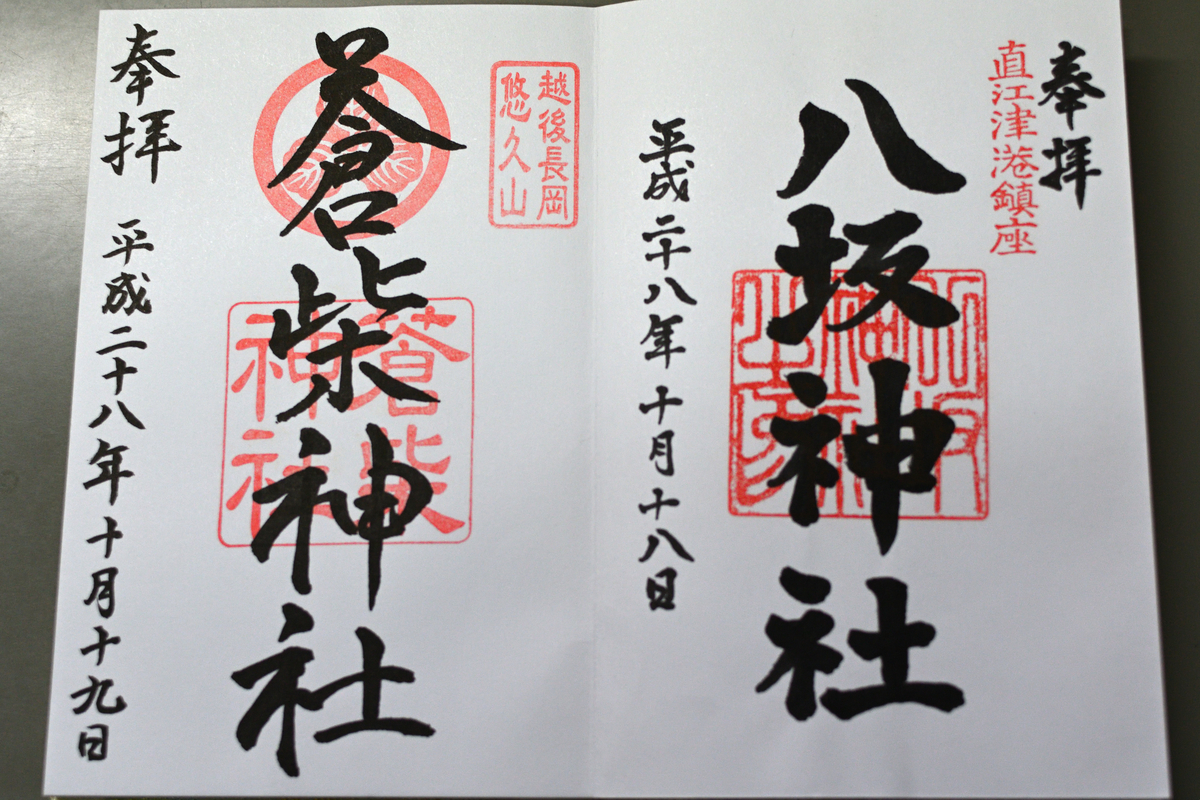 奉拝
直江津港鎮座
八坂神社
平成二十八年十月十八日
越後長岡
悠久山
蒼柴神社
蒼柴
神社
奉拝
平成二十八年十月十九日